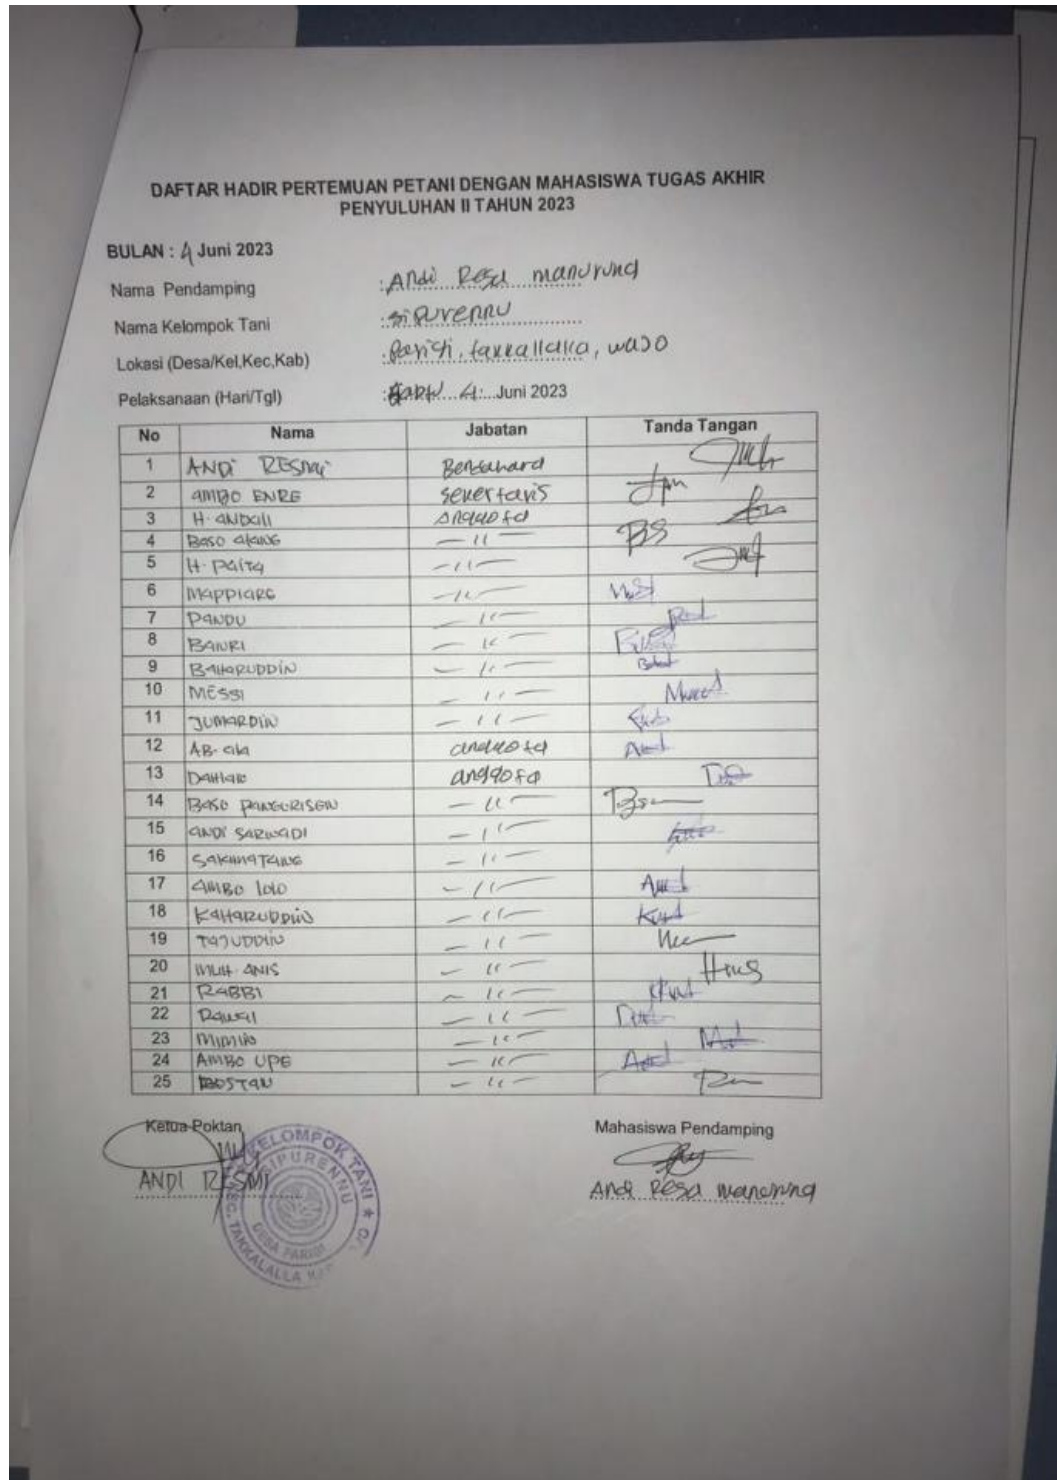 DAFTAR HADIR PERTEMUAN PETANI DENGAN MAHASISWA TUGAS AKHIR
PENYULUHAN II TAHUN 2023
BULAN : 4 Juni 2023
Nama Pendamping : Andi Resa manurung
Nama Kelompok Tani : sipurennu
Lokasi (Desa/Kel,Kec,Kab) : Parigi, takkallalla, wajo
Pelaksanaan (Hari/Tgl) : 4 Juni 2023
No Nama Jabatan Tanda Tangan
1 ANDI RESMI Bendahara
2 AMBO ENRE sekertaris
3 H. anggota
4 BASO -11-
5 H. Paita -11-
6 MAPPIARE -11-
7 PANDU -11-
8 BANRI -11-
9 BAHARUDDIN -11-
10 MESSI -11-
11 JUMARDIN -11-
12 AB. anggota
13 DAHLAN anggota
14 BASO -11-
15 ANDI SARWADI -11-
16 -11-
17 AMBO lolo -11-
18 KAHARUDDIN -11-
19 TAJUDDIN -11-
20 MUH. ANIS -11-
21 RABBI -11-
22 -11-
23 -11-
24 AMBO UPE -11-
25 BOSTAN -11-
Ketua Poktan Mahasiswa Pendamping
ANDI RESMI Andi Resa manurung
KELOMPOK TANI
SIPURENNU
DESA PARIGI
KEC. TAKKALALLA